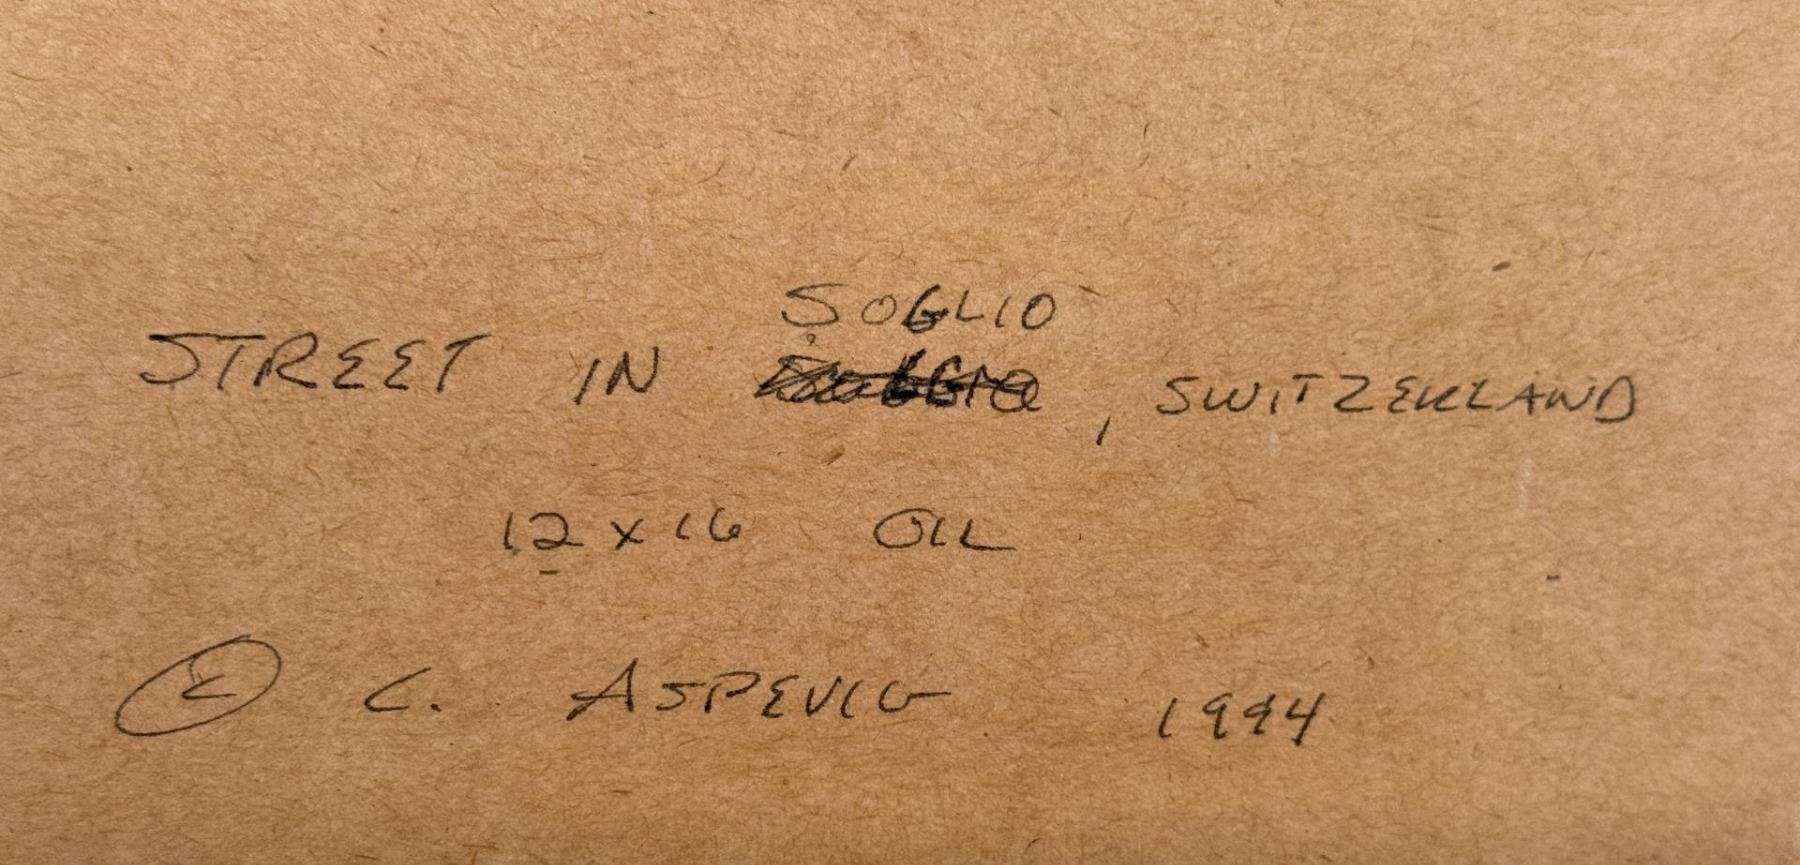 STREET IN SOGLIO, SWITZERLAND
12 x 16 OIL
© C. ASPEVIG 1994